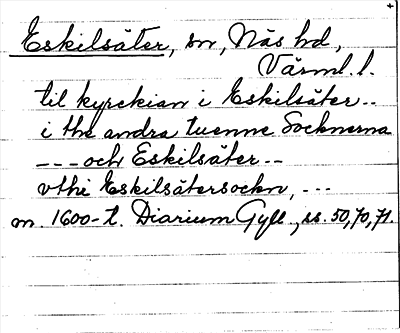 Eskilsäter, sn, Näs hd,
Värml. l.
til kyrckian i Eskilsäter--
i the andra tuenne Socknerna
---och Eskilsäter--
vthi Eskilsätersockn, ---
m. 1600-t. Diarium Gyll., ss. 50, 70, 71.